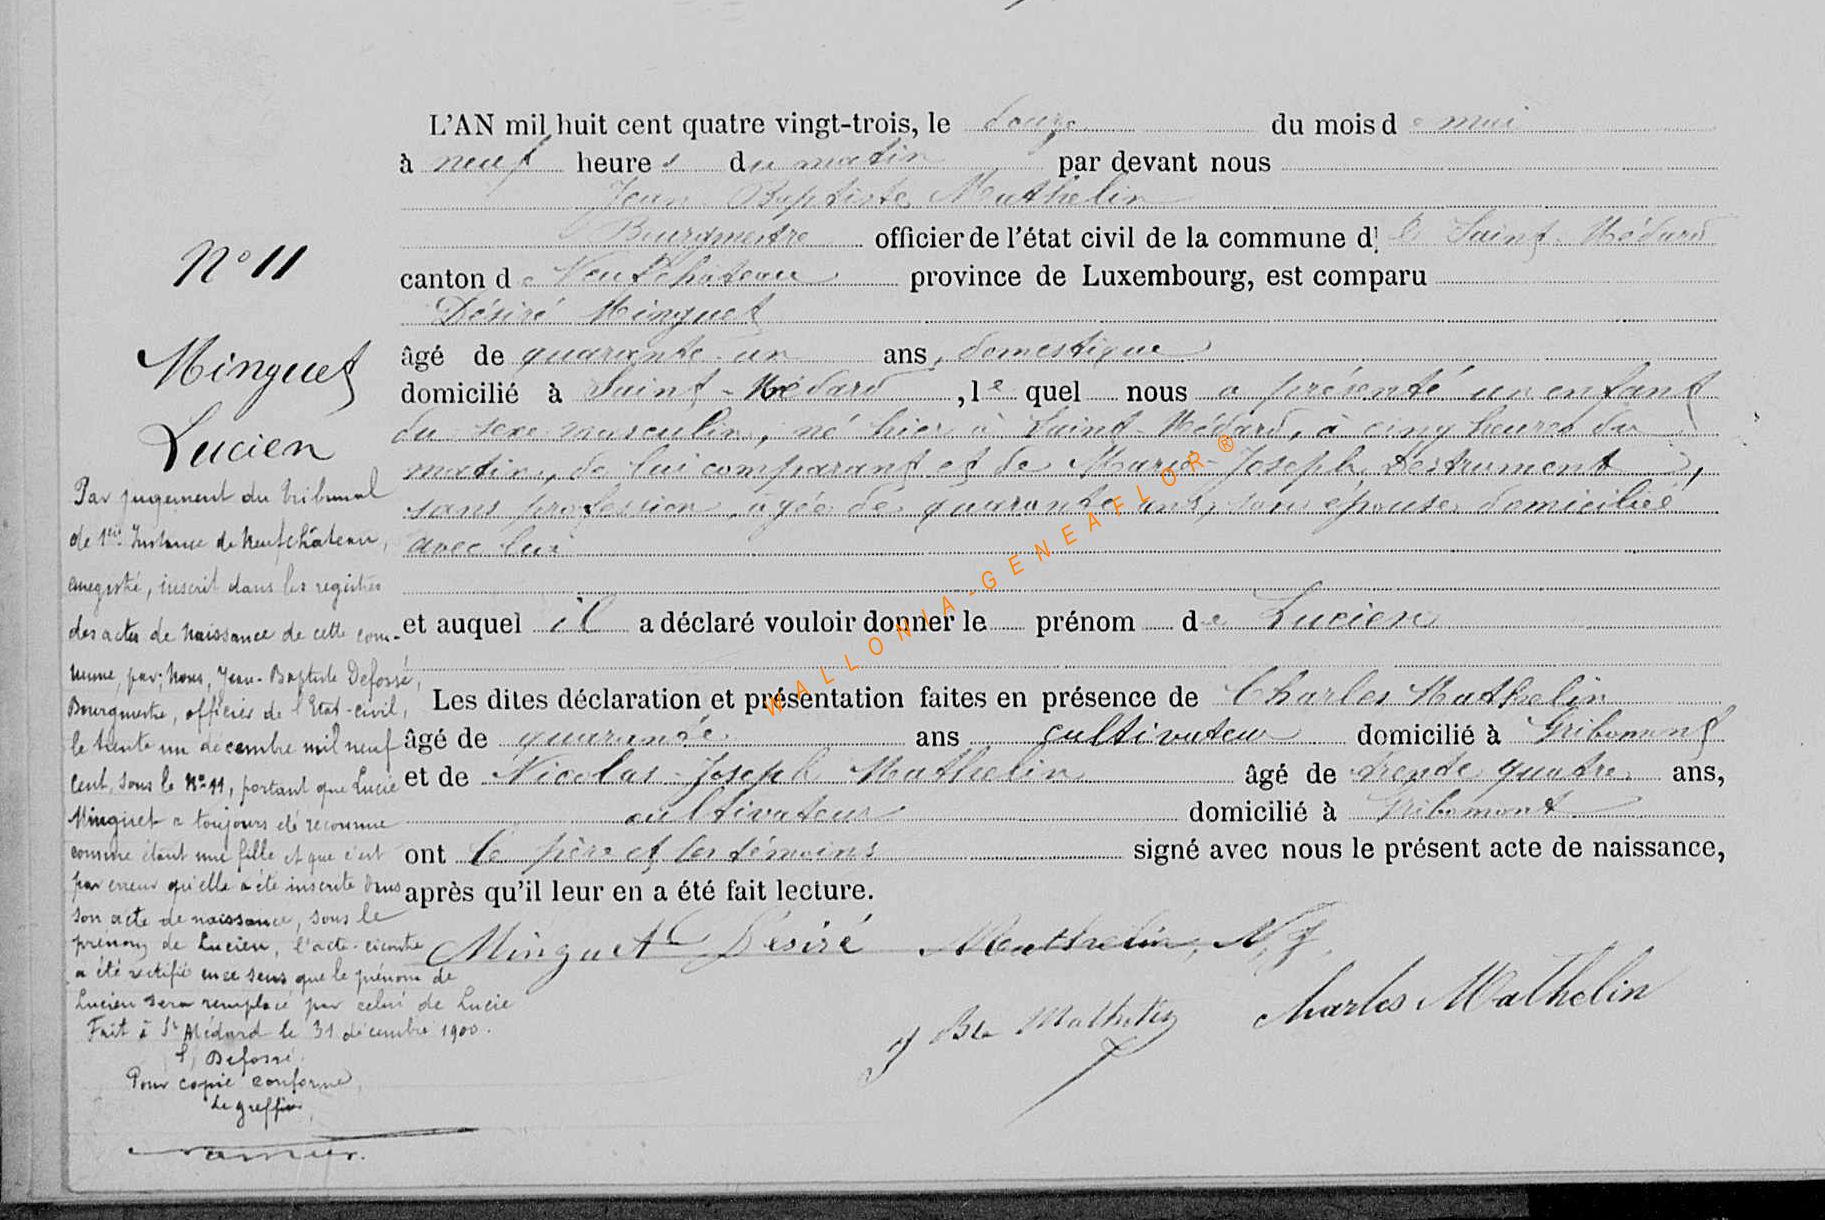 N° 11
Minguet
Lucien
Par jugement du tribunal
de 1ère Instance de Neufchâteau,
enregistré, inscrit dans les registres
des actes de Naissance de cette com-
mune, par; Nous, Jean-Baptiste Defossé,
Bourgmestre, officier de l'Etat-civil,
le trente un décembre mil neuf
cent, sous le N° 11, portant que Lucie
Minguet a toujours été reconnue
comme étant une fille et que c'est
par erreur qu'elle a été inscrite dans
son acte de naissance, sous le
prénom de Lucien, l'acte ci-contre
a été rectifié en ce sens que le prénom de
Lucien sera remplacé par celui de Lucie
Fait à St Médard le 31 décembre 1900.
Defossé
Pour copie conforme,
Le greffier
L'AN mil huit cent quatre vingt-trois, le douze du mois de mai
à neuf heures du matin par devant nous
Jean Baptiste Mathelin
Bourgmestre officier de l'état civil de la commune de Saint-Médard
canton de Neufchâteau province de Luxembourg, est comparu
Désiré Minguet
âgé de quarante-un ans, domestique
domicilié à Saint-Médard, le quel nous a présenté un enfant
du sexe masculin, né hier à Saint-Médard, à cinq heures du
matin, de lui comparant et de Marie-Joseph Destrument,
sans profession, âgée de quarante ans, son épouse domiciliée
avec lui
et auquel il a déclaré vouloir donner le prénom de Lucien
Les dites déclaration et présentation faites en présence de Charles Mathelin
âgé de quarante ans cultivateur domicilié à Gribomont
et de Nicolas-Joseph Mathelin âgé de trente quatre ans,
cultivateur domicilié à Gribomont
ont le père et les témoins signé avec nous le présent acte de naissance,
après qu'il leur en a été fait lecture.
Minguet Désiré Mathelin, N. J.
J Bte Mathelin Charles Mathelin
WALLONIA-GENEAFLOR ®